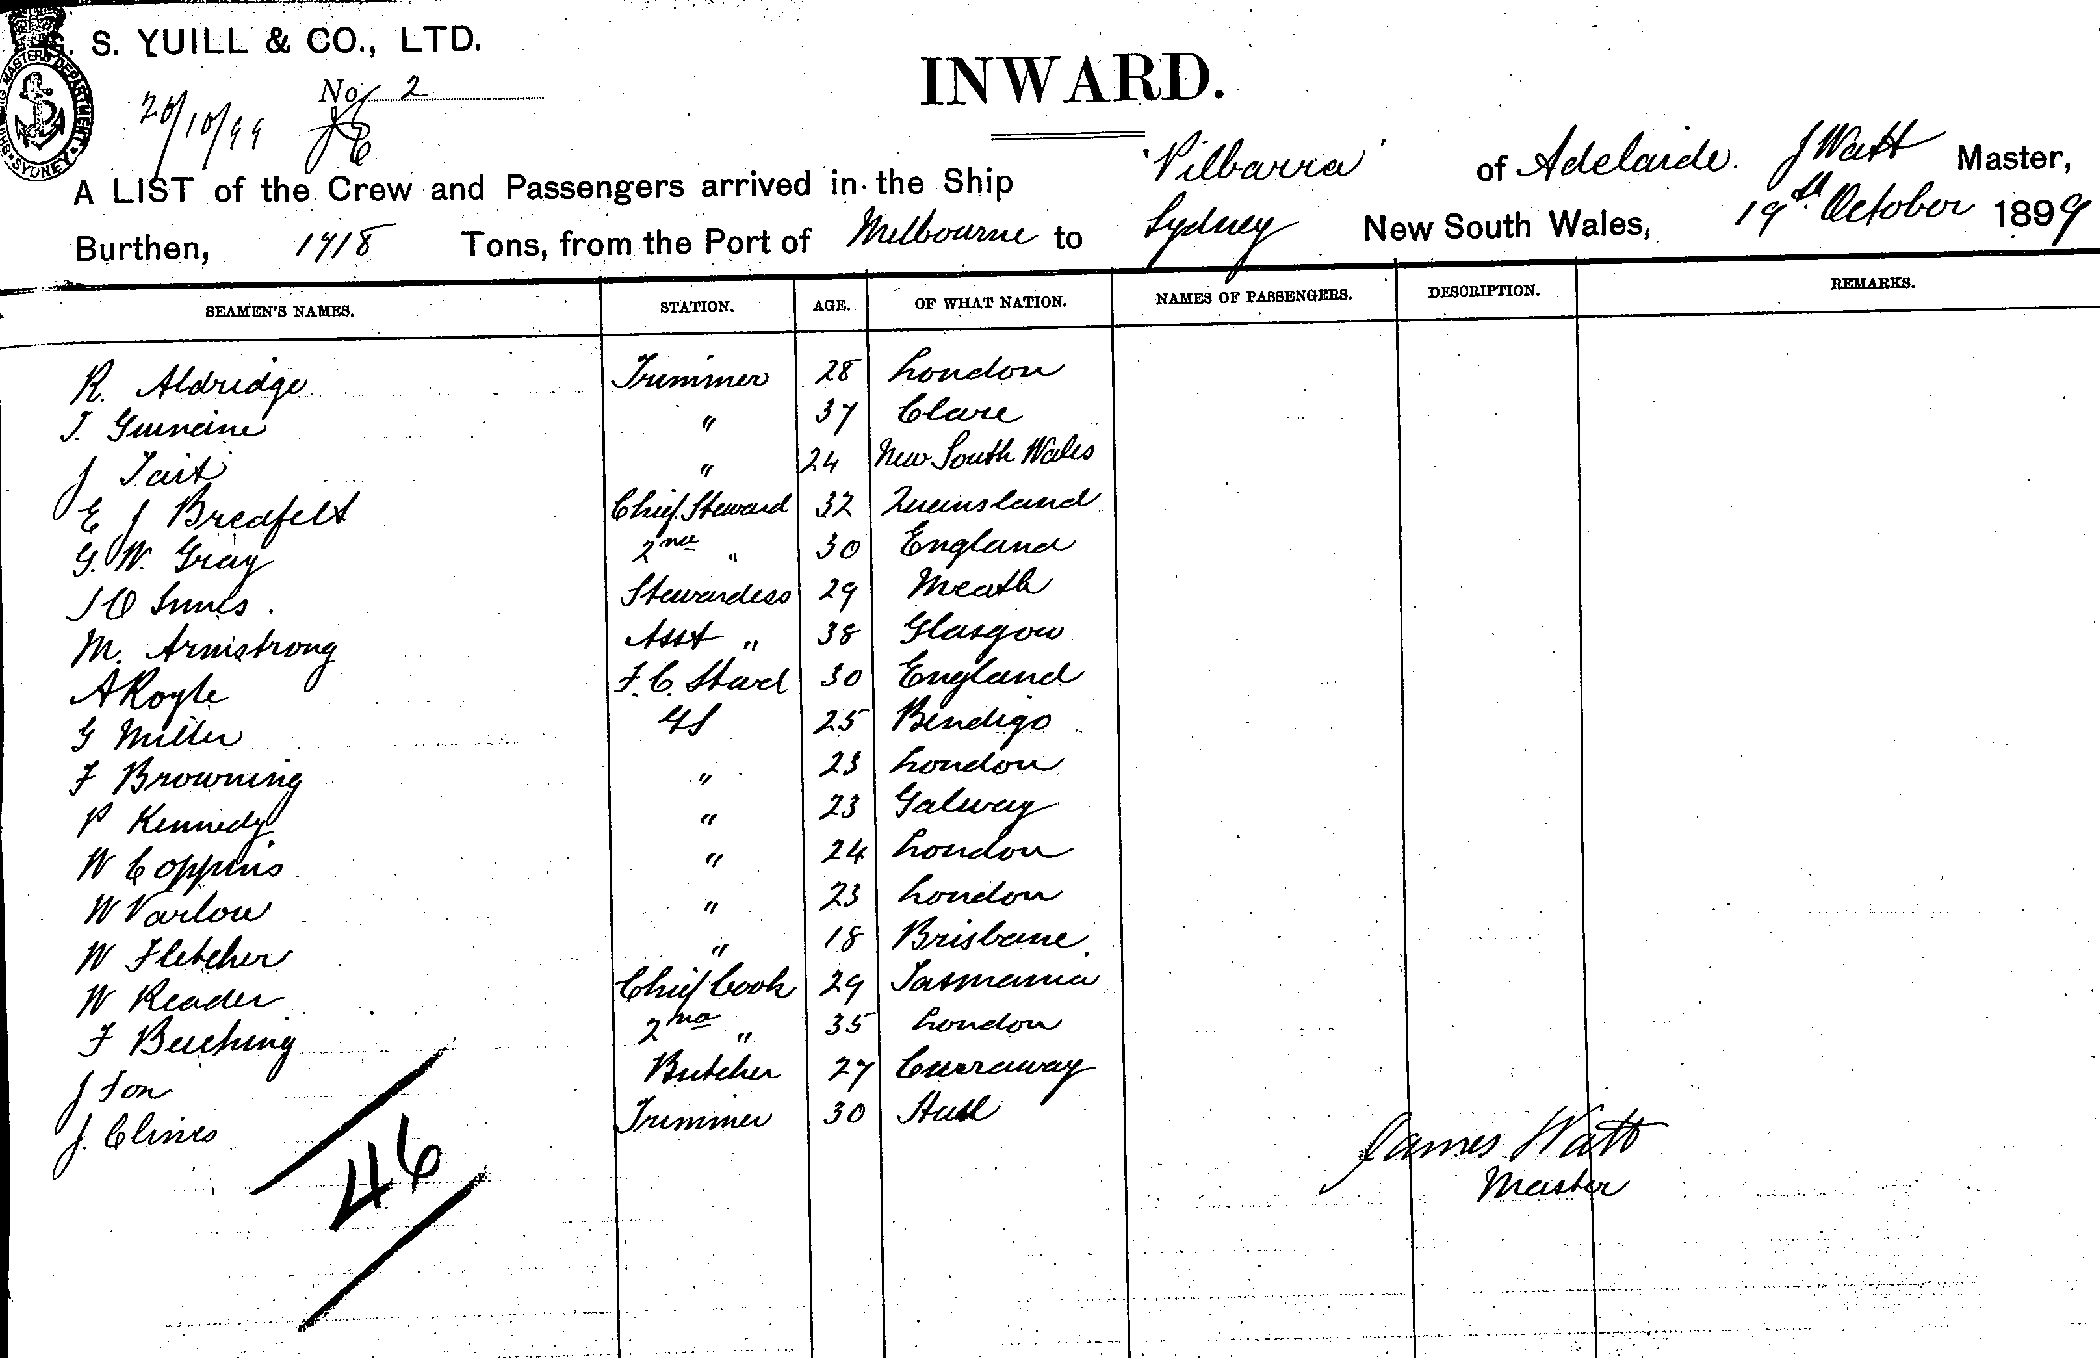 . S. YUILL & CO., LTD.
SHIPPING MASTERS DEPARTMENT SYDNEY
No 2
20/10/99
INWARD.
A LIST of the Crew and Passengers arrived in the Ship 'Pilbarra' of Adelaide. J Watt Master,
Burthen, 1718 Tons, from the Port of Melbourne to Sydney New South Wales, 19th October 1899
SEAMEN'S NAMES. STATION. AGE. OF WHAT NATION. NAMES OF PASSENGERS. DESCRIPTION. REMARKS.
R. Aldridge Trimmer 28 London
T. " 37 Clare
J Tait " 24 New South Wales
E J Bredfelt Chief Steward 32 Queensland
G. W. Gray 2nd " 30 England
Innes. Stewardess 29 Meath
M. Armstrong Asst " 38 Glasgow
A Royle F. C. Stard 30 England
G Miller 25 Bendigo
F Browning " 23 London
P Kennedy " 23 Galway
W Coppins " 24 London
W Varlow " 23 London
W Fletcher " 18 Brisbane
W Reader Chief Cook 29 Tasmania
F Beeching 2nd " 35 London
J Butcher 27
J. Clines Trimmer 30 Hull
46
James Watt
Master